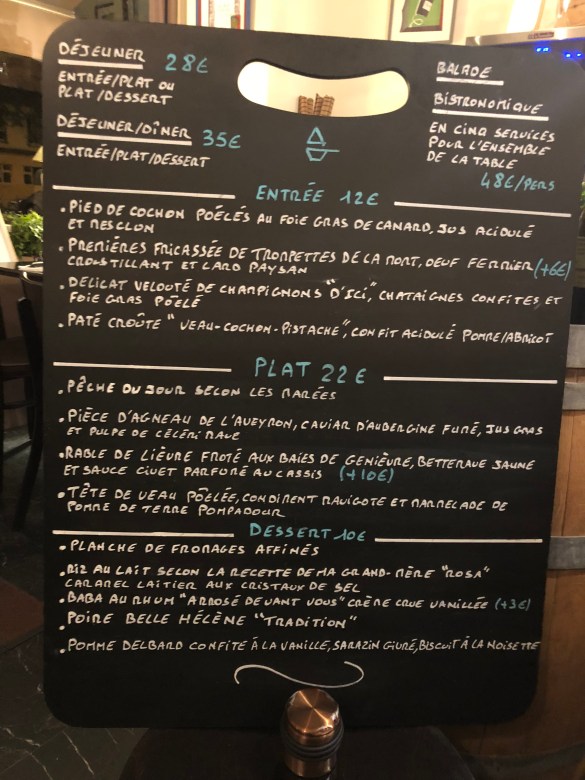 DÉJEUNER 28€
ENTRÉE/PLAT OU
PLAT/DESSERT
DÉJEUNER/DÎNER 35€
ENTRÉE/PLAT/DESSERT
BALADE
BISTRONOMIQUE
EN CINQ SERVICES
POUR L'ENSEMBLE
DE LA TABLE
48€/PERS
ENTRÉE 12€
.PIED DE COCHON POÊLÉS AU FOIE GRAS DE CANARD, JUS ACIDULÉ
ET MESCLUN
.PREMIÈRES FRICASSÉE DE TROMPETTES DE LA MORT, OEUF FERMIER (+6€)
CROUSTILLANT ET LARD PAYSAN
.DELICAT VELOUTÉ DE CHAMPIGNONS "D'ICI", CHATAIGNES CONFITES ET
FOIE GRAS POÊLÉ
.PATÉ CROÛTE "VEAU-COCHON-PISTACHE", CONFIT ACIDULÉ POMME/ABRICOT
PLAT 22€
.PÊCHE DU JOUR SELON LES MARÉES
.PIÈCE D'AGNEAU DE L'AVEYRON, CAVIAR D'AUBERGINE FUMÉ, JUS GRAS
ET PULPE DE CÉLERI RAVE
.RABLE DE LIÈVRE FROTÉ AUX BAIES DE GENIÈVRE, BETTERAVE JAUNE
ET SAUCE CIVET PARFUMÉ AU CASSIS (+10€)
.TÊTE DE VEAU POÊLÉE, CONDIMENT RAVIGOTE ET MARMELADE DE
POMME DE TERRE POMPADOUR
DESSERT 10€
.PLANCHE DE FROMAGES AFFINÉS
.RIZ AU LAIT SELON LA RECETTE DE MA GRAND-MÈRE "ROSA"
CARAMEL LAITIER AUX CRISTAUX DE SEL
.BABA AU RHUM "ARROSÉ DEVANT VOUS" CRÈME CRUE VANILLÉE (+3€)
.POIRE BELLE HÉLÈNE "TRADITION"
.POMME DELBARD CONFITE À LA VANILLE, SARAZIN GIVRÉ, BISCUIT À LA NOISETTE